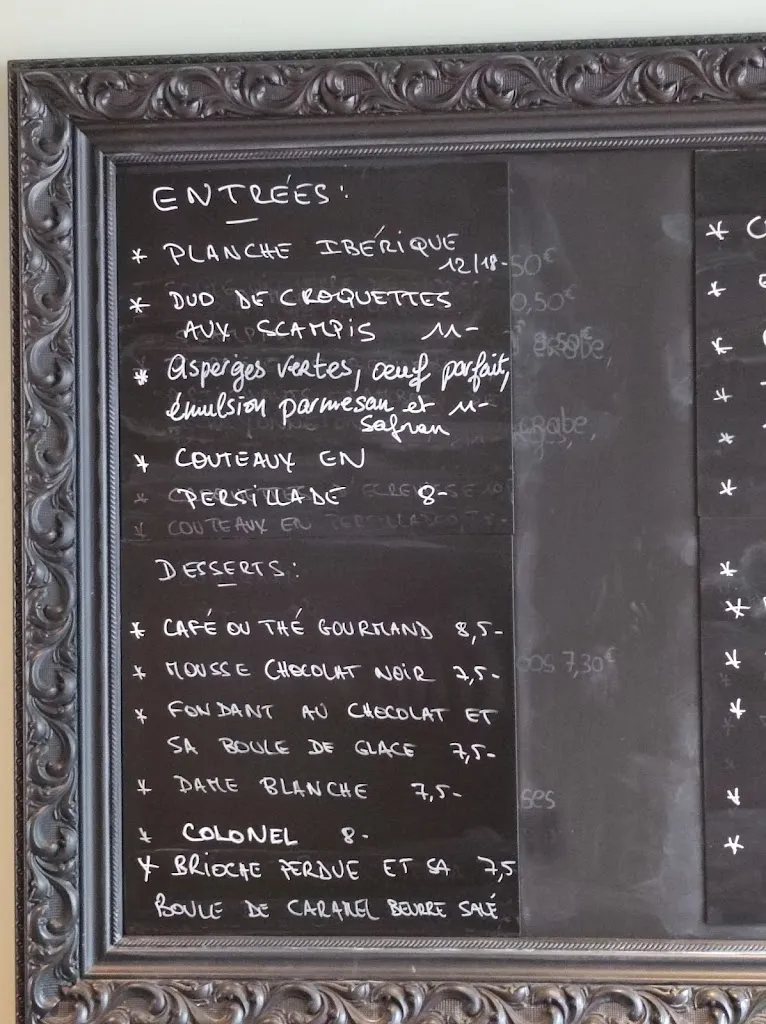 ENTRÉES:
* PLANCHE IBÉRIQUE
12/18-
* DUO DE CROQUETTES
AUX SCAMPIS 11-
* Asperges vertes, oeuf parfait,
émulsion parmesan et 11-
Safran
* COUTEAUX EN
PERSILLADE 8-
COUTEAUX EN
DESSERTS:
* CAFÉ OU THÉ GOURMAND 8,5-
* MOUSSE CHOCOLAT NOIR 7,5-
* FONDANT AU CHOCOLAT ET
SA BOULE DE GLACE 7,5-
* DAME BLANCHE 7,5-
* COLONEL 8-
* BRIOCHE PERDUE ET SA 7,5
BOULE DE CARAMEL BEURRE SALÉ
50€
0,50€
7,30€
ses